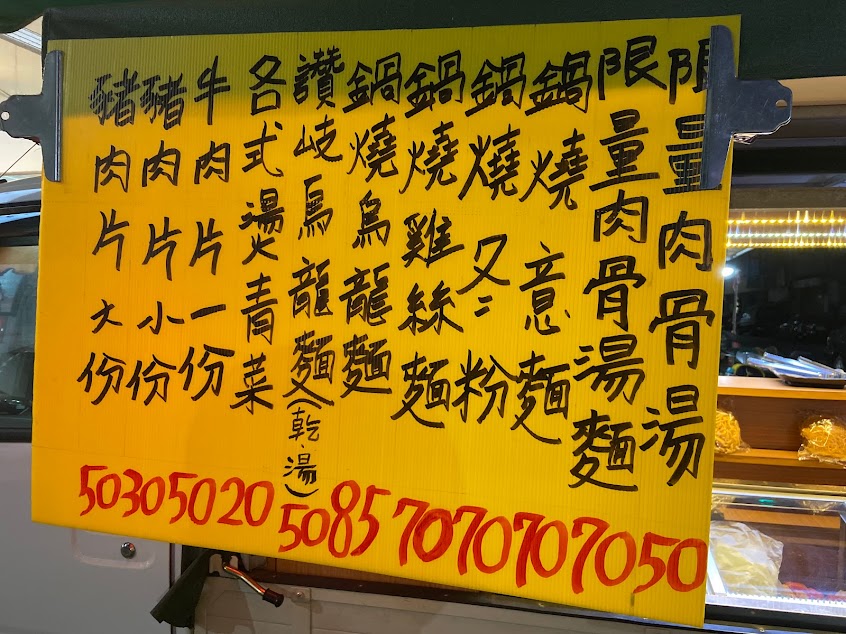 限量肉骨湯 50
限量肉骨湯麵 70
鍋燒意麵 70
鍋燒冬粉 70
鍋燒雞絲麵 70
鍋燒烏龍麵 85
讚岐烏龍麵(乾.湯) 50
各式燙青菜 20
牛肉片一份 50
豬肉片小份 30
豬肉片大份 50